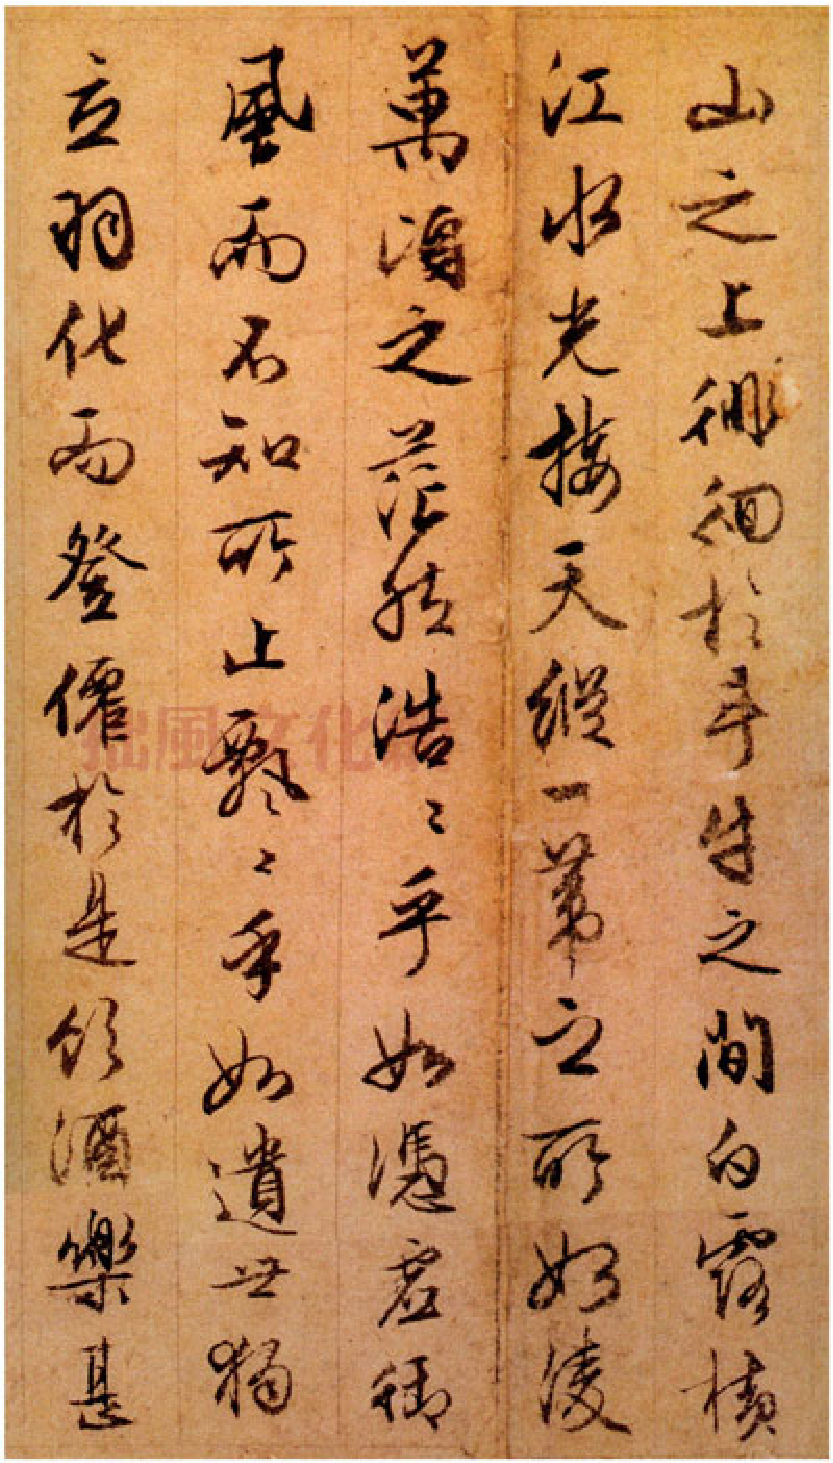 山之上徘徊於斗牛之間白露横
江水光接天縱一葦之所如凌
萬頃之茫然浩〻乎如憑虚御
風而不知所止飄〻乎如遺世獨
立羽化而登僊於是飲酒樂甚
拙風文化網